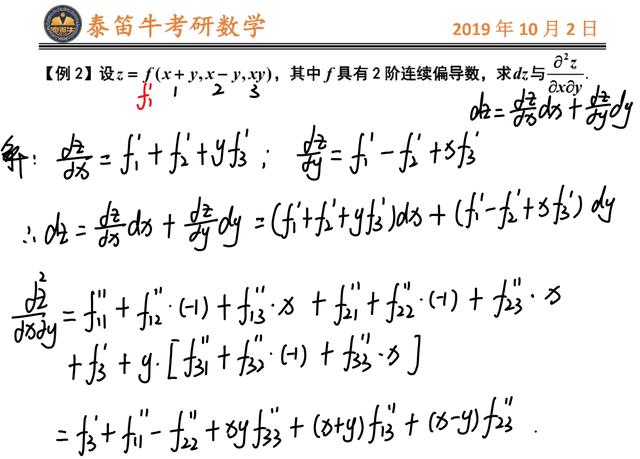 泰笛牛
泰笛牛考研数学
2019 年 10 月 2 日
【例 2】设 z = f(x + y, x − y, xy)，其中 f 具有 2 阶连续偏导数，求 dz 与 ∂²z/∂x∂y.
f₁' 1 2 3
dz = ∂z/∂x dx + ∂z/∂y dy
解: ∂z/∂x = f₁' + f₂' + yf₃' ; ∂z/∂y = f₁' − f₂' + xf₃'
∴ dz = ∂z/∂x dx + ∂z/∂y dy = (f₁' + f₂' + yf₃')dx + (f₁' − f₂' + xf₃')dy
∂²z/∂x∂y = f₁₁'' + f₁₂''·(-1) + f₁₃''·x + f₂₁'' + f₂₂''·(-1) + f₂₃''·x
+ f₃' + y·[f₃₁'' + f₃₂''·(-1) + f₃₃''·x]
= f₃' + f₁₁'' − f₂₂'' + xyf₃₃'' + (x+y)f₁₃'' + (x−y)f₂₃'' .